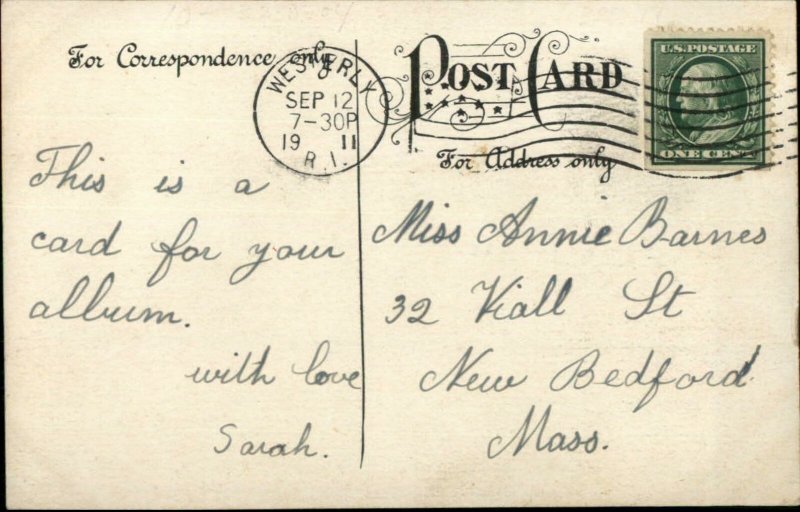 For Correspondence only
POST CARD
For Address only
WESTERLY
SEP 12
7-30P
19 11
R.I.
U.S. POSTAGE
ONE CENT
This is a
card for your
album.
with love
Sarah.
Miss Annie Barnes
32 Viall St
New Bedford
Mass.